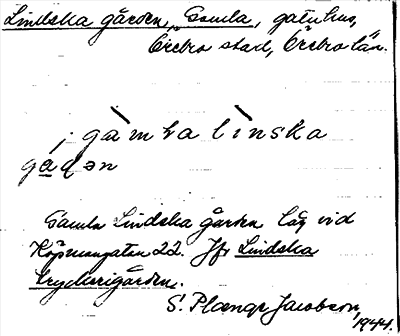 Lindska gården, Gamla, gatuhus,
Örebro stad, Örebro län.
i gàmba lìnska
gáɖən
Gamla Lindska gården låg vid
Köpmangatan 22. Jfr Lindska
tryckerigården.
S. Plænge Jacobson,
1944.